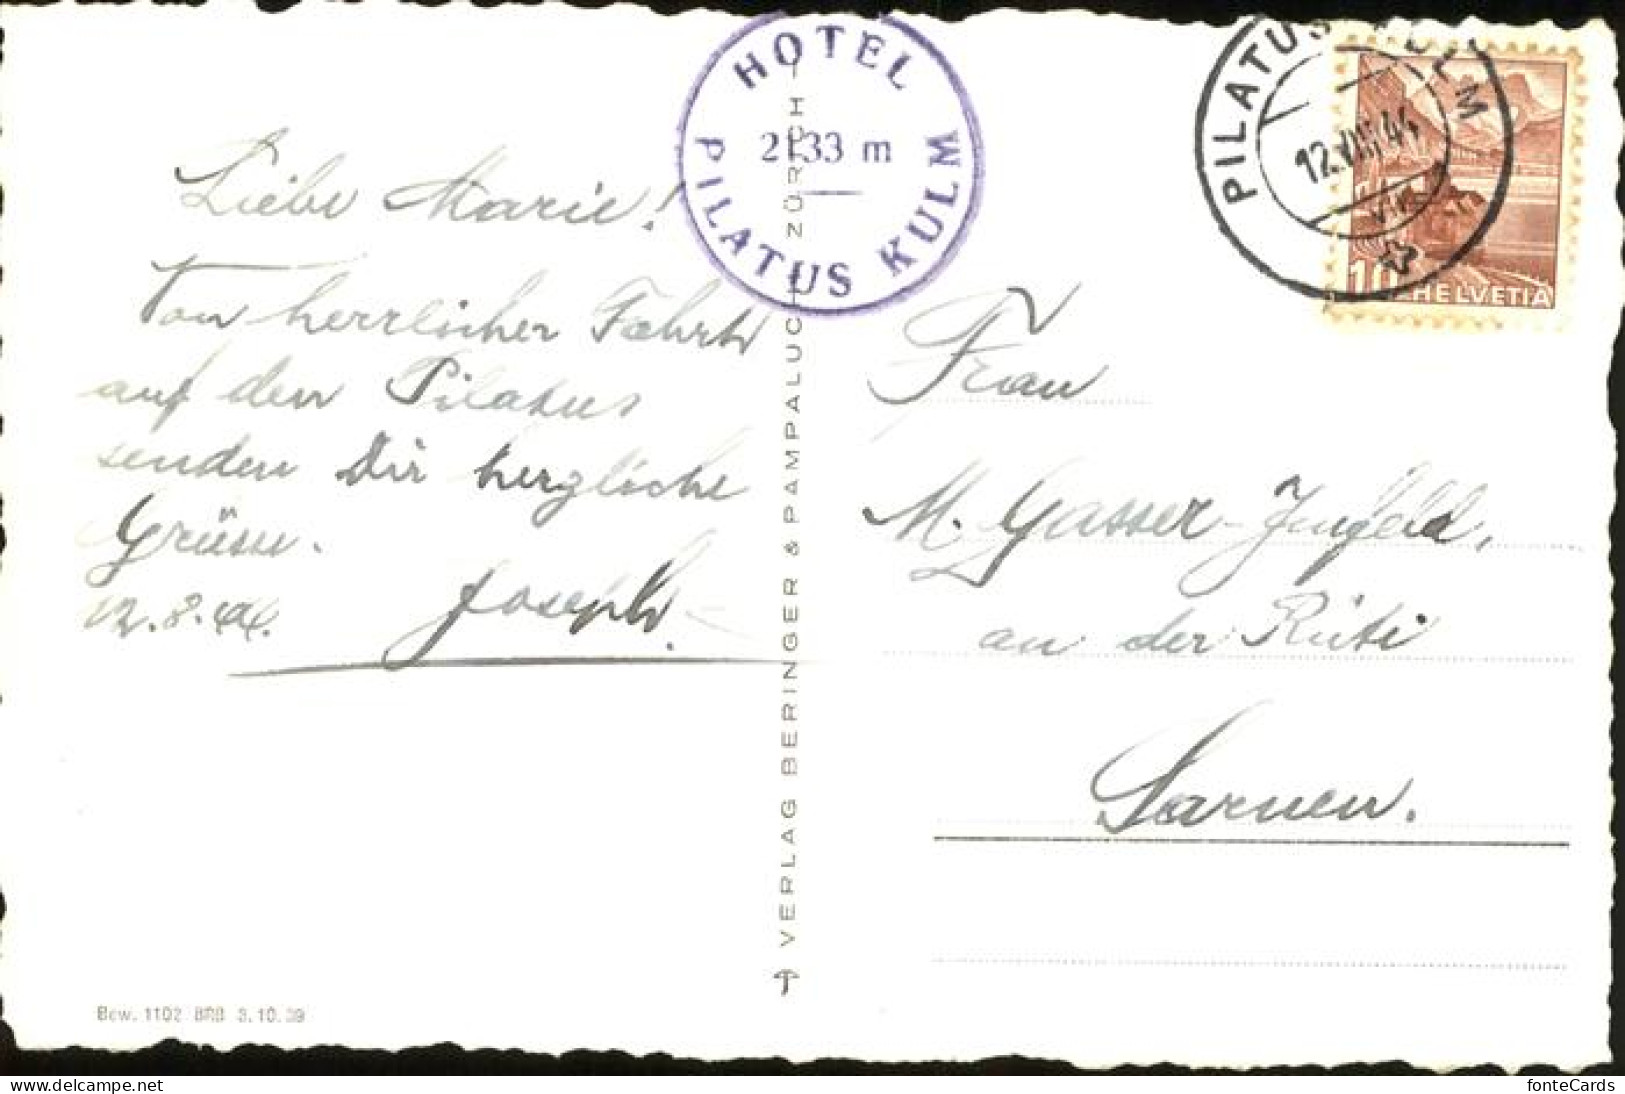 HOTEL
2133 m
PILATUS KULM
PILATUS KULM
12.VIII.44
10 HELVETIA
Liebe Marie!
Von herrlicher Fahrt
auf den Pilatus
senden Dir herzliche
Grüsse.
12.8.44. Joseph.
Frau
M. Gasser-Imfeld,
an der Rüti
Sarnen.
VERLAG BERINGER & PAMPALUCHI ZÜRICH
Bew. 1102 BRB 3.10.39
fonteCards